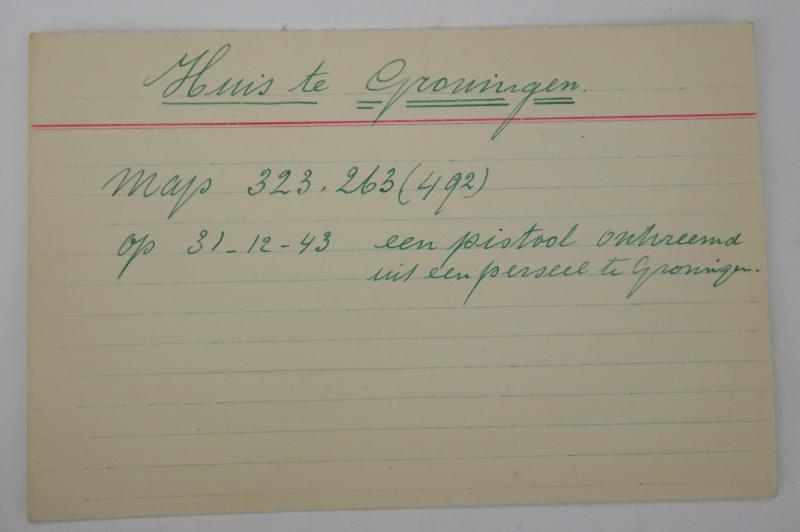 Huis te Groningen.
Map 323.263(492)
op 31-12-43 een pistool ontvreemd
uit een perseel te Groningen.